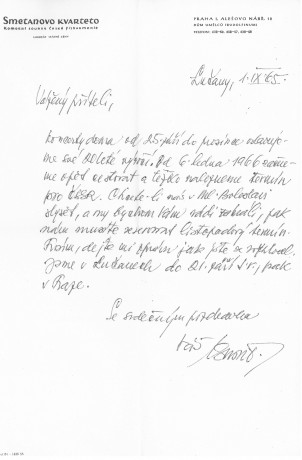 Smetanovo kvarteto
Komorní soubor České filharmonie
PRAHA I, ALEŠOVO NÁBŘ. 12
DŮM UMĚLCŮ (RUDOLFINUM)
Lužany, 1.IX.65.
Vážený příteli,
koncerty doma od 25. září do prosince oslavuje-
me své 20leté výročí. Od 6. ledna 1966 začne-
me opět cestovat a těžko nalezneme termín
pro ČSSR. Chcete-li nás v Ml. Boleslavi
slyšet, a my bychom Vám rádi zahráli, pak
nám musíte rezervovat listopadový termín.
Prosím, dejte mi zprávu jak jste se rozhodl.
Jsme v Lužanech do 21. září t.r., pak
v Praze.
Se srdečným pozdravem
Váš